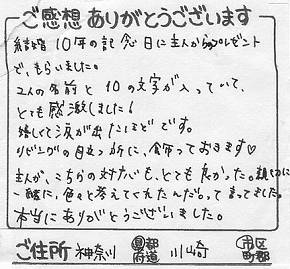 ご感想ありがとうございます
結婚10年の記念日に主人からのプレゼント
で、もらいました。
2人の名前と10の文字が入っていて、
とても感激しました!
嬉しくて涙が出たほどです。
リビングの目立つ所に、飾っております♡
主人が、こちらの対応も、とても良かった。親切に
一緒に、色々と考えてくれたんだ。って言ってました。
本当にありがとうございました。
ご住所 神奈川 都道府県 川崎 市区町郡